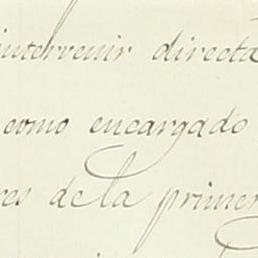 intervenir directa
como encargado
res de la primer